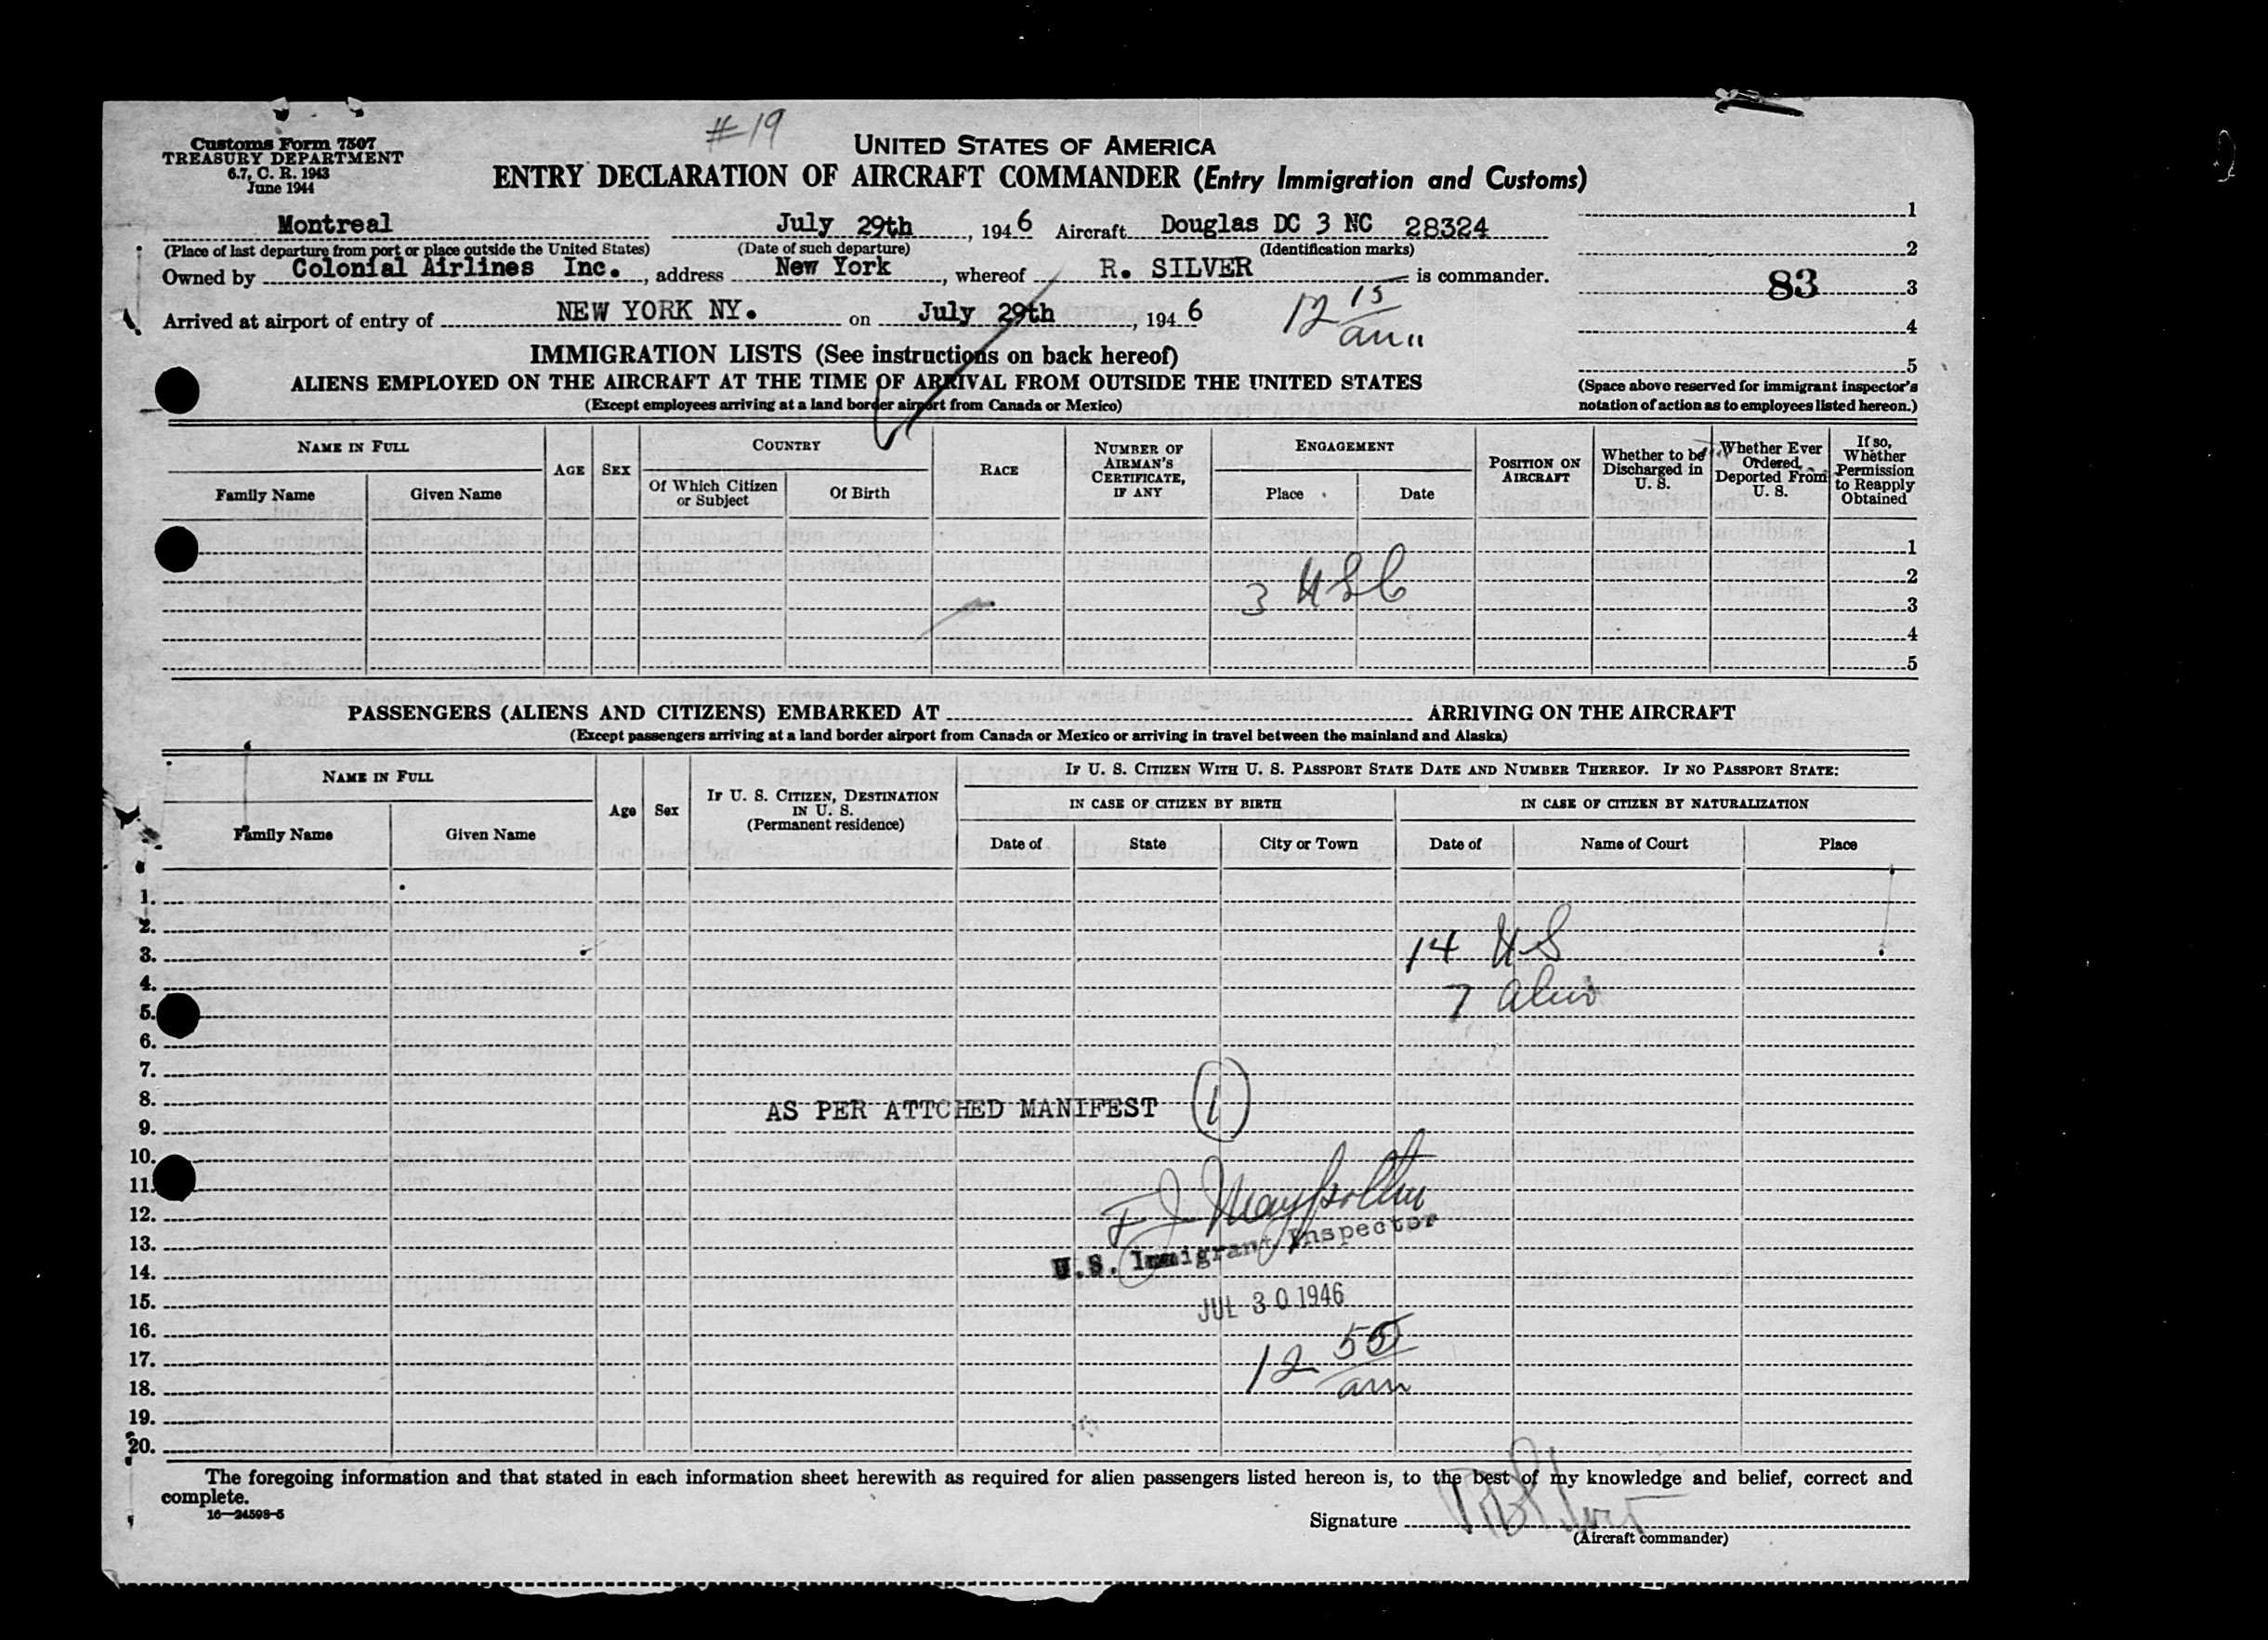 #19
Customs Form 7507
TREASURY DEPARTMENT
6.7, C. R. 1943
June 1944
UNITED STATES OF AMERICA
ENTRY DECLARATION OF AIRCRAFT COMMANDER (Entry Immigration and Customs)
Montreal July 29th, 1946 Aircraft Douglas DC 3 NC 28324
(Place of last departure from port or place outside the United States) (Date of such departure) (Identification marks)
Owned by Colonial Airlines Inc., address New York, whereof R. SILVER is commander.
Arrived at airport of entry of NEW YORK NY. on July 29th, 1946
12 15 am
1
2
83 3
4
5
(Space above reserved for immigrant inspector's
notation of action as to employees listed hereon.)
IMMIGRATION LISTS (See instructions on back hereof)
ALIENS EMPLOYED ON THE AIRCRAFT AT THE TIME OF ARRIVAL FROM OUTSIDE THE UNITED STATES
(Except employees arriving at a land border airport from Canada or Mexico)
NAME IN FULL
Family Name
Given Name
AGE
SEX
COUNTRY
Of Which Citizen
or Subject
Of Birth
RACE
NUMBER OF
AIRMAN'S
CERTIFICATE,
IF ANY
ENGAGEMENT
Place
Date
POSITION ON
AIRCRAFT
Whether to be
Discharged in
U. S.
Whether Ever
Ordered
Deported From
U. S.
If so,
Whether
Permission
to Reapply
Obtained
1
2
3 USC
3
4
5
PASSENGERS (ALIENS AND CITIZENS) EMBARKED AT ARRIVING ON THE AIRCRAFT
(Except passengers arriving at a land border airport from Canada or Mexico or arriving in travel between the mainland and Alaska)
NAME IN FULL
Family Name
Given Name
Age
Sex
IF U. S. CITIZEN, DESTINATION
IN U. S.
(Permanent residence)
IF U. S. CITIZEN WITH U. S. PASSPORT STATE DATE AND NUMBER THEREOF. IF NO PASSPORT STATE:
IN CASE OF CITIZEN BY BIRTH
Date of
State
City or Town
IN CASE OF CITIZEN BY NATURALIZATION
Date of
Name of Court
Place
1.
2.
3. 14 US
4. 7
5.
6.
7.
8. AS PER ATTCHED MANIFEST 1
9.
10.
11.
12.
13. U.S. Immigrant Inspector
14.
15. JUL 30 1946
16.
17. 12 50 am
18.
19.
20.
The foregoing information and that stated in each information sheet herewith as required for alien passengers listed hereon is, to the best of my knowledge and belief, correct and
complete.
16—24598-5
Signature
(Aircraft commander)